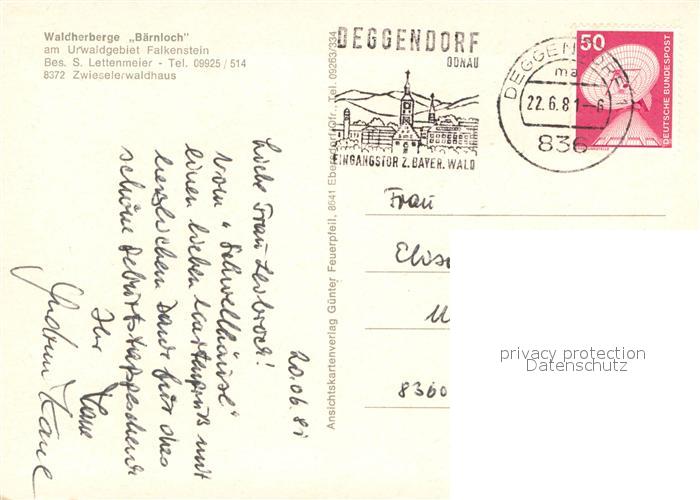 Waldherberge „Bärnloch"
am Urwaldgebiet Falkenstein
Bes. S. Lettenmeier - Tel. 09925 / 514
8372 Zwieselerwaldhaus
DEGGENDORF
DONAU
EINGANGSTOR Z. BAYER. WALD
DEGGENDORF 1
ma
22.6.81-6
836
50
DEUTSCHE BUNDESPOST
Ansichtskartenverlag Günter Feuerpfeil, 8641 Ebersdorf/Ofr., Tel. 09263/334
20.06.81
Liebe Frau
vom "Schwellhäusl"
einen lieben Kartengruß mit
herzlichem Dank für das
schöne Geburtstagsgeschenk
Ihr
Frau
8360
privacy protection
Datenschutz